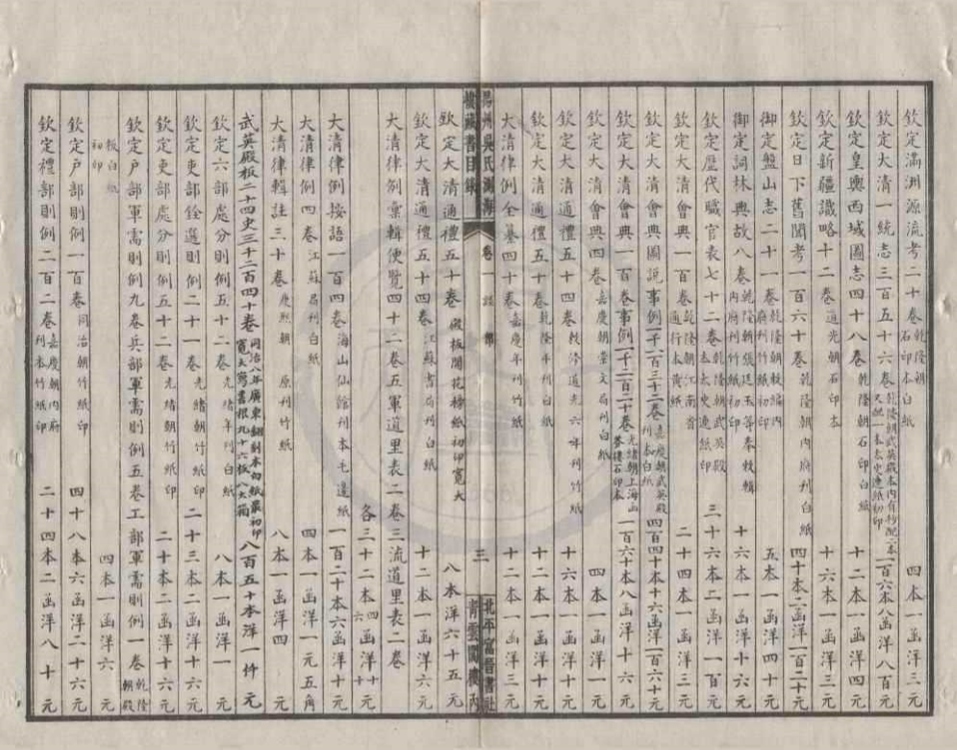 欽定滿洲源流考二十卷 乾隆朝石印本白紙 四本一函洋三元
欽定大清一統志三百五十六卷 乾隆朝武英殿本內有抄配二本又配一本太史連紙初印 一百六本八函洋八百元
欽定皇輿西域圖志四十八卷 乾隆朝石印白紙 十二本一函洋四元
欽定新疆識略十二卷 道光朝石印本 十六本一函洋三元
欽定日下舊聞考一百六十卷 乾隆朝內府刊白紙 四十本六函洋一百二十元
御定盤山志二十一卷 乾隆朝敕編內府刊竹紙初印 五本一函洋四十元
御定詞林典故八卷 乾隆朝張廷玉等奉敕輯內府刊竹紙初印 十六本一函洋十六元
欽定歷代職官表七十二卷 乾隆朝武英殿本太史連紙印 三十六本二函洋一百元
欽定大清會典一百卷 乾隆朝江南省通行本黃紙 二十四本一函洋三元
欽定大清會典圖說事例一千一百三十二卷 嘉慶朝武英殿刊本白紙 四百四十本十六函洋一百六十元
欽定大清會典一百卷事例一千二百二十卷 光緒朝上海山茶樓石印本 一百六十本八函洋十六元
欽定大清會典四卷 嘉慶朝堂文局刊白紙 四本一函洋一元
欽定大清通禮五十四卷 敕修道光六年刊竹紙 十六本一函洋十元
欽定大清通禮五十卷 乾隆年刊竹紙 十二本一函洋十元
大清律例全纂四十卷 嘉慶年刊竹紙 十二本一函洋三元
揚州吳氏測海樓藏書目錄 卷一 三 北平富晉書社 青雲閣樓內
欽定大清通禮五十卷 殿板開花榜紙初印寬大 八本洋六十五元
欽定大清通禮五十四卷 江蘇書局刊白紙 十二本一函洋六元
大清律例彙輯便覽四十二卷五軍道里表二卷三流道里表二卷
各三十二本 四四函洋十十元
大清律例按語一百四卷 海山仙館刊本毛邊紙 一百二十本六函洋十元
大清律例四卷 江蘇局刊白紙 四本一函洋一元五角
大清律輯註三十卷 康熙朝原刊竹紙 八本一函洋四元
武英殿板二十四史三千二百四十卷 同治八年廣東翻刻本白紙最初印寬大寫書根九十六板八大箱 八百五十本洋一仟元
欽定六部處分則例五十二卷 光緒年刊白紙 八本一函洋一元
欽定吏部銓選則例二十一卷 光緒朝竹紙印 二十三本二函洋十六元
欽定吏部處分則例五十二卷 光緒朝竹紙印 二十本二函洋十六元
欽定戶部軍需則例九卷兵部軍需則例五卷工部軍需則例一卷 乾隆朝殿
板白紙初印 四本一函洋六元
欽定戶部則例一百卷 同治朝竹紙印 四十八本六函洋二十六元
欽定禮部則例二百二卷 嘉慶朝內府刊本竹紙印 二十四本二函洋八十元